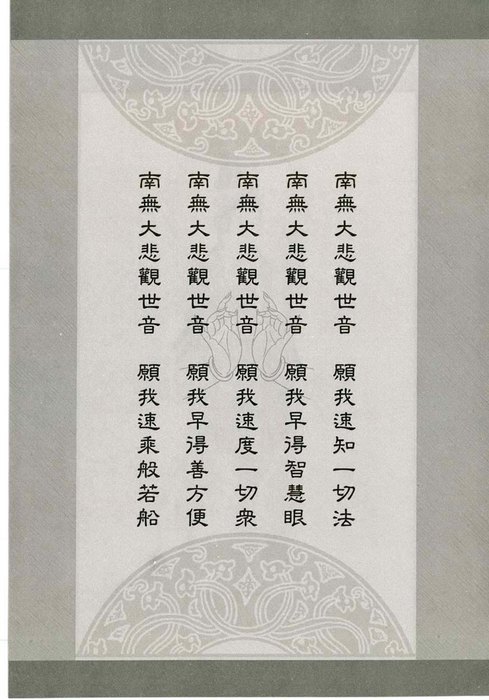 南無大悲觀世音　願我速知一切法
南無大悲觀世音　願我早得智慧眼
南無大悲觀世音　願我速度一切衆
南無大悲觀世音　願我早得善方便
南無大悲觀世音　願我速乘般若船